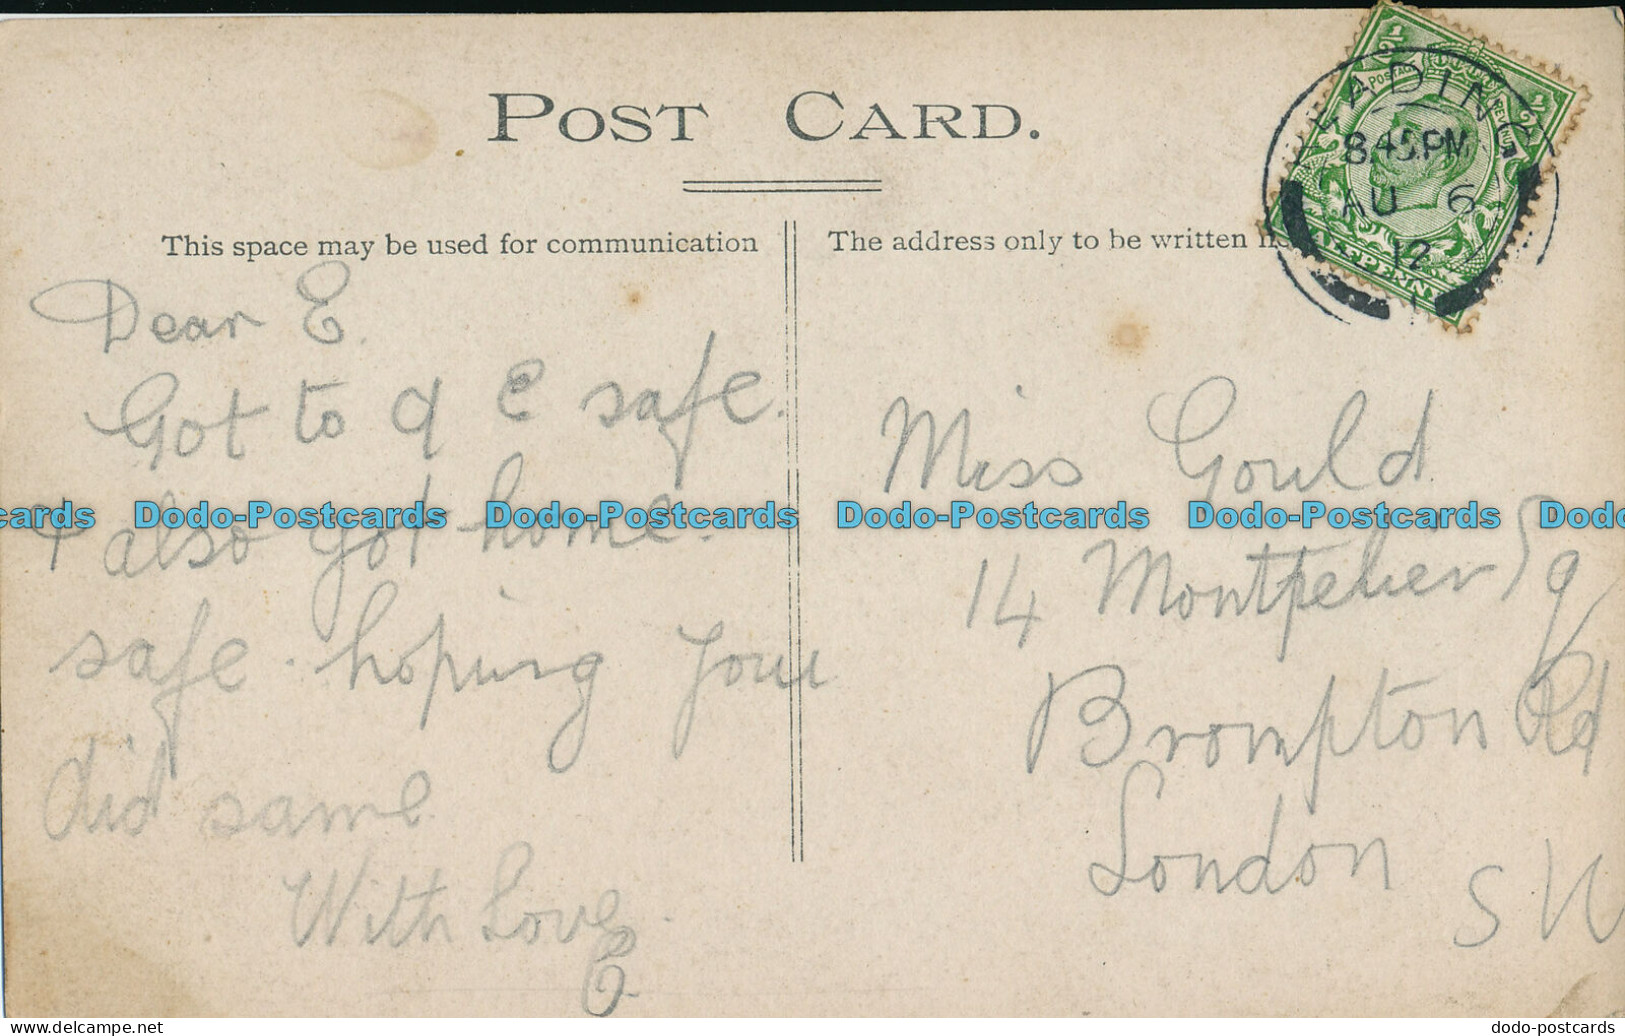 POST CARD.
This space may be used for communication
The address only to be written
READING
8.45PM
AU 6
12
½ ½
POSTAGE REVENUE
HALFPENNY
Dear E.
Got to q e safe.
& also got home.
safe. hoping you
did same
With Love
E.
Miss Gould
14 Montpelier Sq
Brompton Rd
London
S W
cards Dodo-Postcards Dodo-Postcards Dodo-Postcards Dodo-Postcards Dodo
www.delcampe.net
dodo-postcards